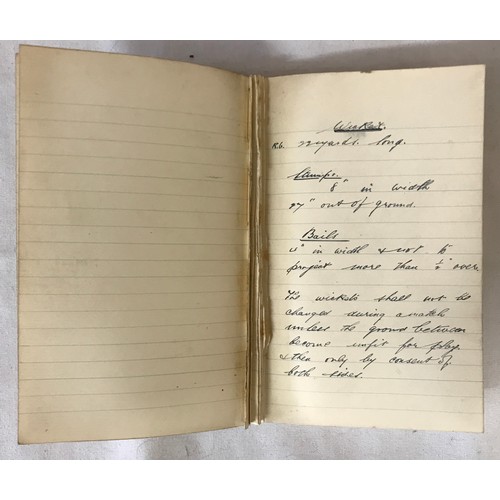 Wicket.
R.6. 22 yards long.
Stumps.
8" in width
27" out of ground.
Bails
4" in width & not to
project more than ½" over
The wickets shall not be
changed during a match
unless the ground between
become unfit for play.
& then only by consent of
both sides.